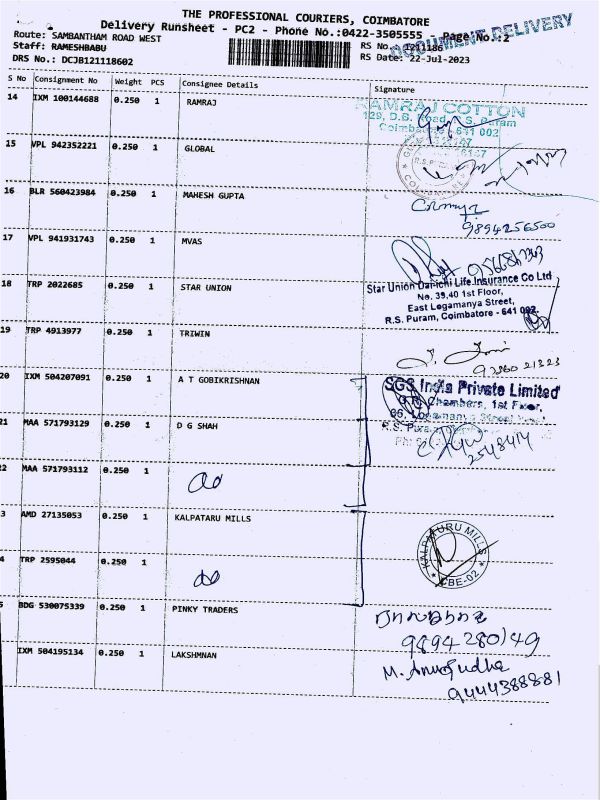 THE PROFESSIONAL COURIERS, COIMBATORE
Delivery Runsheet - PC2 - Phone No.:0422-3505555 - Page No.:2
DOCUMENT DELIVERY
Route: SAMBANTHAM ROAD WEST
RS No. 1211186
Staff: RAMESHBABU
RS Date: 22-Jul-2023
DRS No.: DCJB121118602
S No Consignment No Weight PCS Consignee Details Signature
14 IXM 100144688 0.250 1 RAMRAJ
RAMRAJ COTTON
129, D.B. Road, R.S. Puram
Coimbatore - 641 002
15 VPL 942352221 0.250 1 GLOBAL
16 BLR 560423984 0.250 1 MAHESH GUPTA
9894256500
17 VPL 941931743 0.250 1 MVAS
18 TRP 2022685 0.250 1 STAR UNION
Star Union Dai-ichi Life Insurance Co Ltd
No. 39,40 1st Floor,
East Logamanya Street,
R.S. Puram, Coimbatore - 641 002.
19 TRP 4913977 0.250 1 TRIWIN
20 IXM 504207091 0.250 1 A T GOBIKRISHNAN
SGS India Private Limited
Chambers, 1st Floor,
21 MAA 571793129 0.250 1 D G SHAH
R.S. Puram
2548414
2 MAA 571793112 0.250 1
3 AMD 27135053 0.250 1 KALPATARU MILLS
KALPATURU MILLS
CBE-02
4 TRP 2595044 0.250 1
5 BDG 530075339 0.250 1 PINKY TRADERS
9894280149
IXM 504195134 0.250 1 LAKSHMNAN
M. Anuradha
9444388881